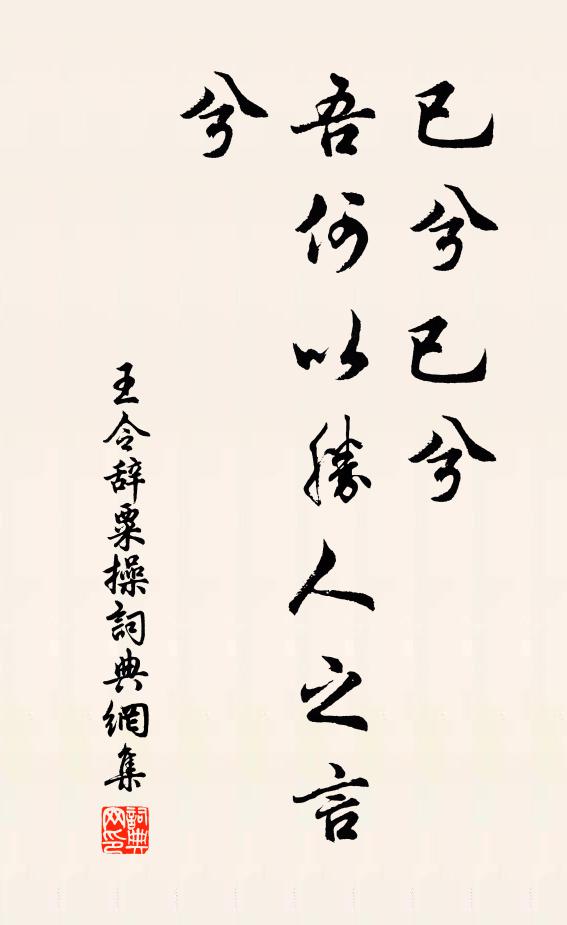 已兮已兮
吾何以勝人之言
兮
王令辞粟操詞典網集
詞典网印